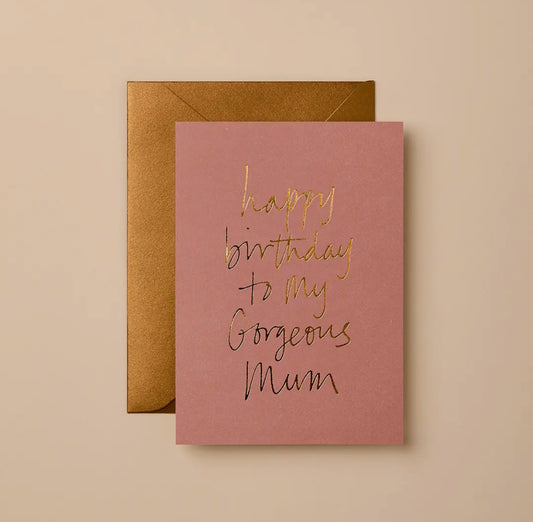 happy
birthday
to my
Gorgeous
Mum